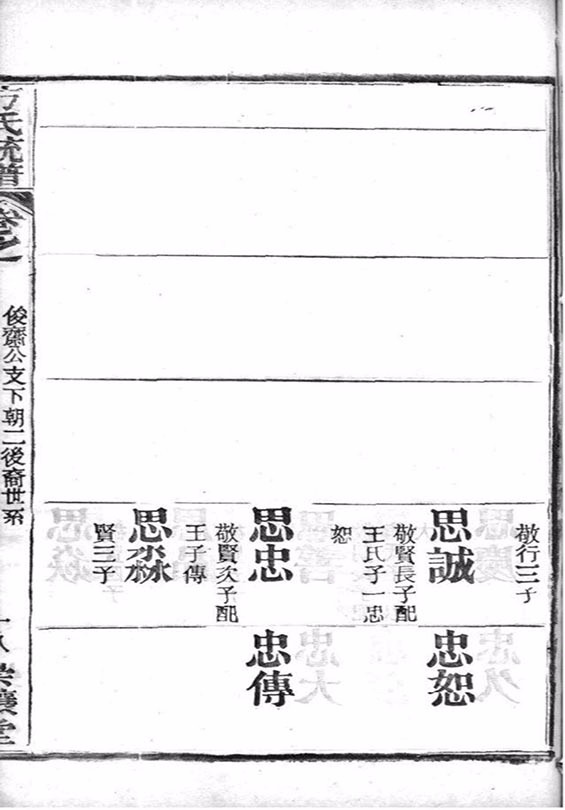 敬行三子
思誠
敬賢長子配
王氏子一忠
恕
忠恕
思忠
敬賢次子配
王子傳
忠傳
思淼
賢三子
方氏統譜
卷之一
俊齋公支下朝二後裔世系